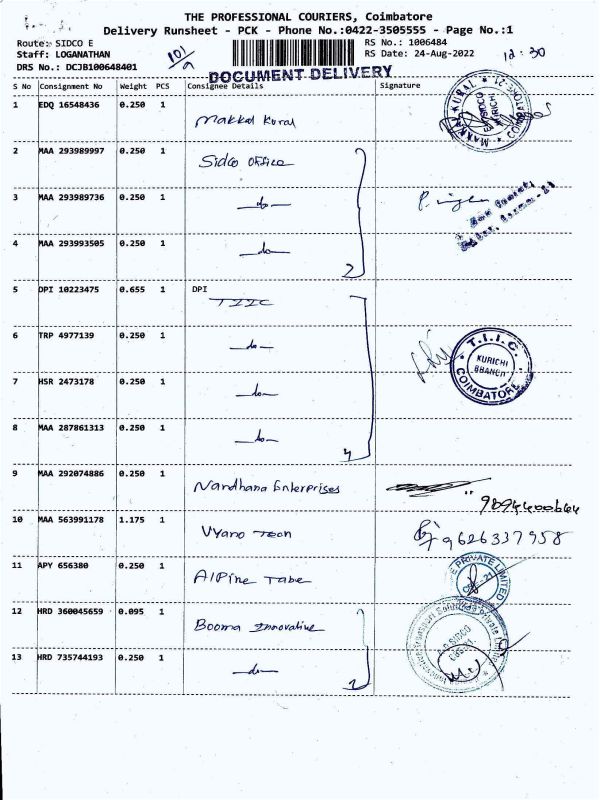 THE PROFESSIONAL COURIERS, Coimbatore
Delivery Runsheet - PCK - Phone No.:0422-3505555 - Page No.:1
Route: SIDCO E
RS No.: 1006484
Staff: LOGANATHAN
RS Date: 24-Aug-2022
12:30
DRS No.: DCJB100648401
101/9
DOCUMENT DELIVERY
S No Consignment No Weight PCS Consignee Details Signature
1 EDQ 16548436 0.250 1 Makkal Kural
MAKKAL KURAL SIDCO KURICHI
2 MAA 293989997 0.250 1 Sidco Office
3 MAA 293989736 0.250 1 -do-
4 MAA 293993505 0.250 1 -do-
2
5 DPI 10223475 0.655 1 DPI
TIIC
6 TRP 4977139 0.250 1 -do-
T.I.I.C. KURICHI BRANCH COIMBATORE
7 HSR 2473178 0.250 1 -do-
8 MAA 287861313 0.250 1 -do-
4
9 MAA 292074886 0.250 1 Nandhana Enterprises
9894400644
10 MAA 563991178 1.175 1 Vyano Tech
9626337958
11 APY 656380 0.250 1 Alpine Tabe
PRIVATE LIMITED CBE-21
12 HRD 360045659 0.095 1 Booma Innovative
SIDCO CBE-21
13 HRD 735744193 0.250 1 -do-
2